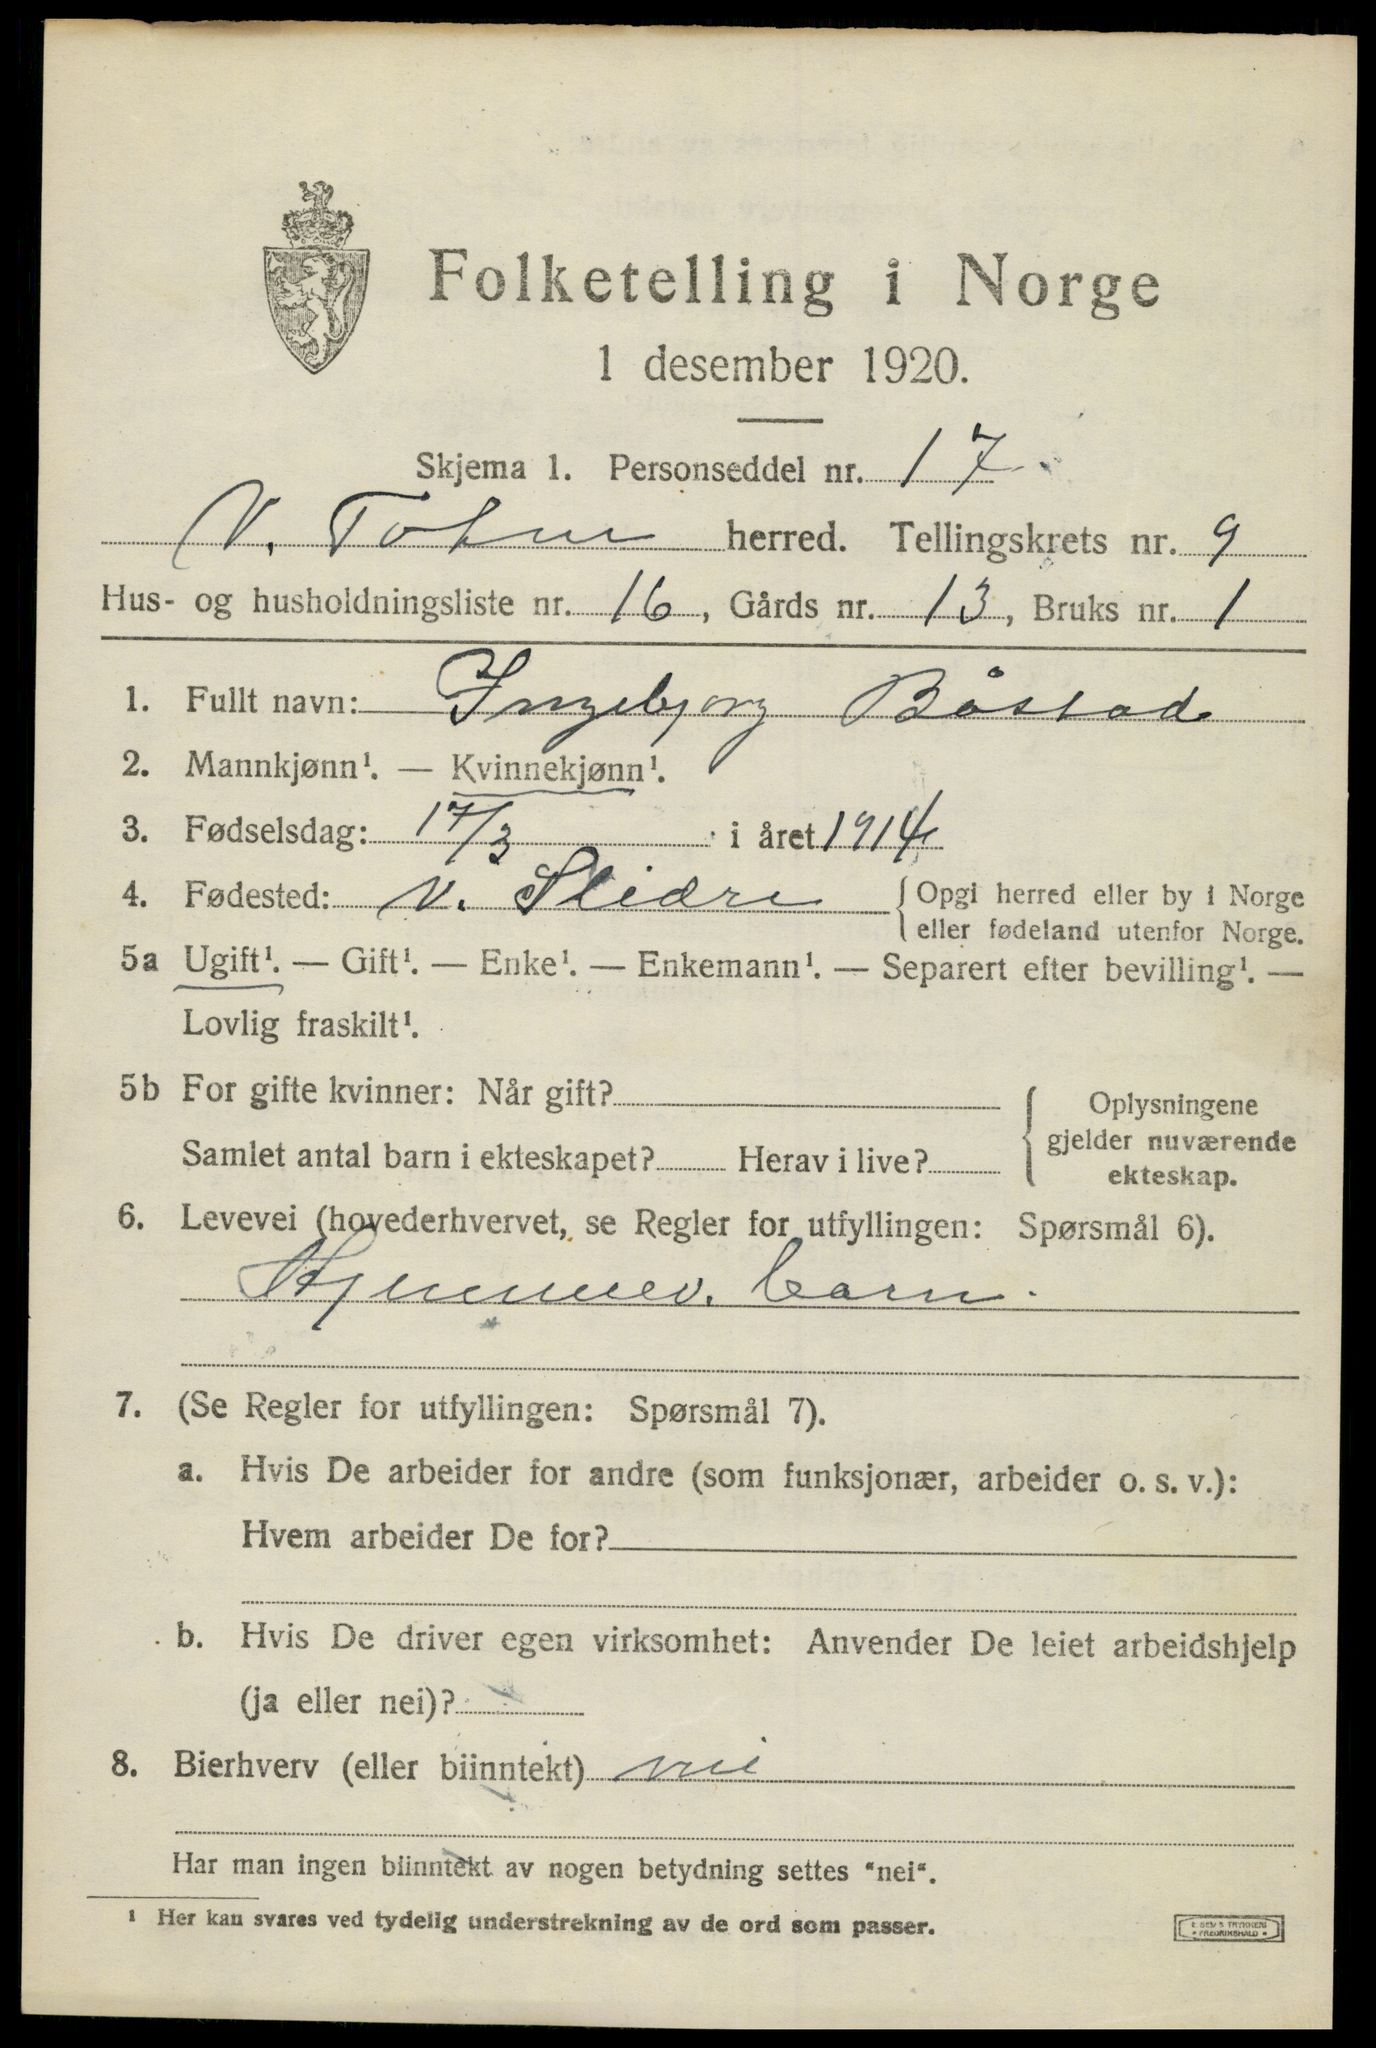 Folketelling i Norge
1 desember 1920.
Skjema 1. Personseddel nr. 17
V. Toten herred. Tellingskrets nr. 9
Hus- og husholdningsliste nr. 16, Gårds nr. 13, Bruks nr. 1
1. Fullt navn: Ingebjørg Båstad
2. Mannkjønn¹. — Kvinnekjønn¹.
3. Fødselsdag: 17/3 i året 1914
4. Fødested: V. Slidre {Opgi herred eller by i Norge
eller fødeland utenfor Norge.
5a Ugift¹. — Gift¹. — Enke¹. — Enkemann¹. — Separert efter bevilling¹. —
Lovlig fraskilt¹.
5b For gifte kvinner: Når gift?
Samlet antal barn i ekteskapet? Herav i live?
Oplysningene
gjelder nuværende
ekteskap.
6. Levevei (hovederhvervet, se Regler for utfyllingen: Spørsmål 6).
Hjemmev. barn.
7. (Se Regler for utfyllingen: Spørsmål 7).
a. Hvis De arbeider for andre (som funksjonær, arbeider o. s. v.):
Hvem arbeider De for?
b. Hvis De driver egen virksomhet: Anvender De leiet arbeidshjelp
(ja eller nei)?
8. Bierhverv (eller biinntekt) nei
Har man ingen biinntekt av nogen betydning settes "nei".
¹ Her kan svares ved tydelig understrekning av de ord som passer.
FREDRIKSHALD